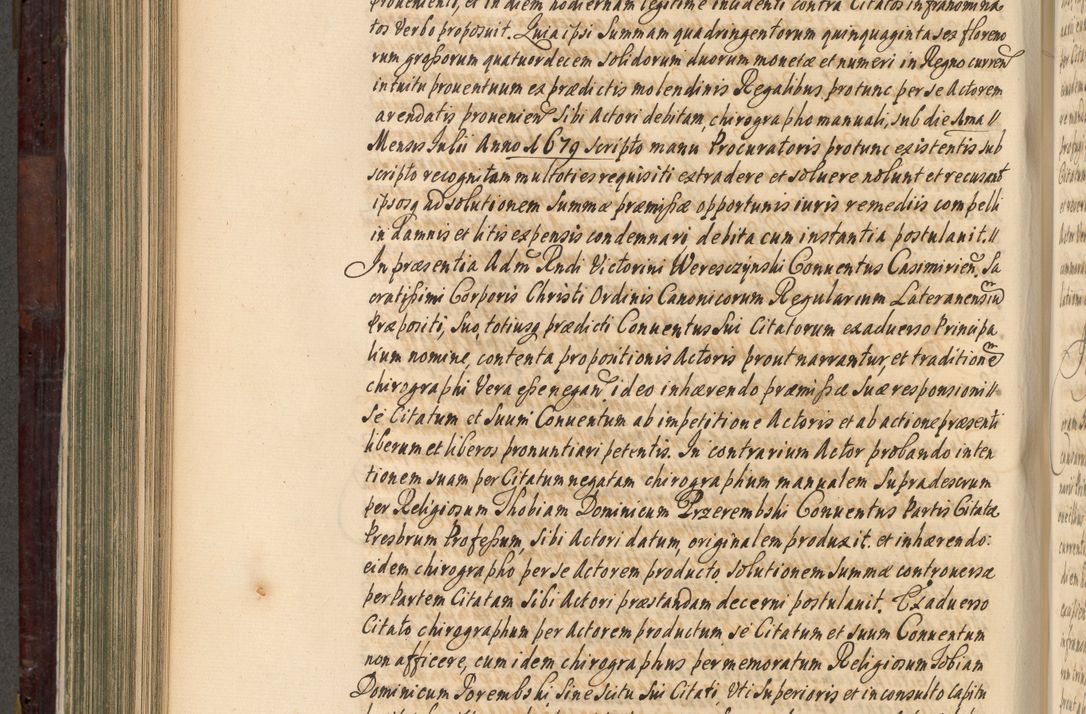 prouenienti, et in diem hodiernam legitime incidenti contra Citatos infranomina
tos Verbo proposuit. Quia ipsi Summam quadringentorum quinquaginta sex floreno
rum grossorum quatuordecem solidorum duorum monetæ et numeri in Regno curren
intuitu prouentuum ex prædictis molendinis Regalibus protunc per se Actorem
arendatis prouenien Sibi Actori debitam, chirographo manuali, sub die
Mensis Julii Anno 1679 scripto manu Procuratoris protunc existentis sub
scripto recognitam multoties requisiti extradere et soluere nolunt et recusant
ipsosq ad solutionem Summæ præmissæ opportunis iuris remediis compelli
in damnis et litis expensis condemnari debita cum instantia postulauit.//
In præsentia Adm Rndi Victorini Weresczynski Conuentus Casimirien. Sa
cratissimi Corporis Christi Ordinis Canonicorum Regularium Lateranensium
Præpositi, Suo, totiusq prædicti Conuentus Sui Citatorum exaduerso Principa
lium nomine, contenta propositionis Actoris prout narrantur, et traditionem
chirographi Vera esse negan. ideo inhærendo præmissæ Suæ responsioni//
Se Citatum et Suum Conuentum ab impetitione Actoris et ab actione præsenti
liberum et liberos pronuntiari petentis. In contrarium Actor probando inten
tionem suam per Citatum negatam chirographum manualem Supradescrum
per Religiosum Thobiam Dominicum Przerembski Conuentus Partis Citatæ
Presbrum Professum, Sibi Actori datum, originalem produxit. et inhærendo:
eidem chirographo per se Actorem producto, Solutionem Summæ controuersæ
per Partem Citatam Sibi Actori præstandam decerni postulauit. Exaduerso
Citato chirographum per Actorem productum, se Citatum et suum Conuentum
non afficere, cum idem chirographus per memoratum Religiosum Tobiam
Dominicum Porembski, Sine Scitu Sui Citati, Uti Superioris et inconsulto Capitu